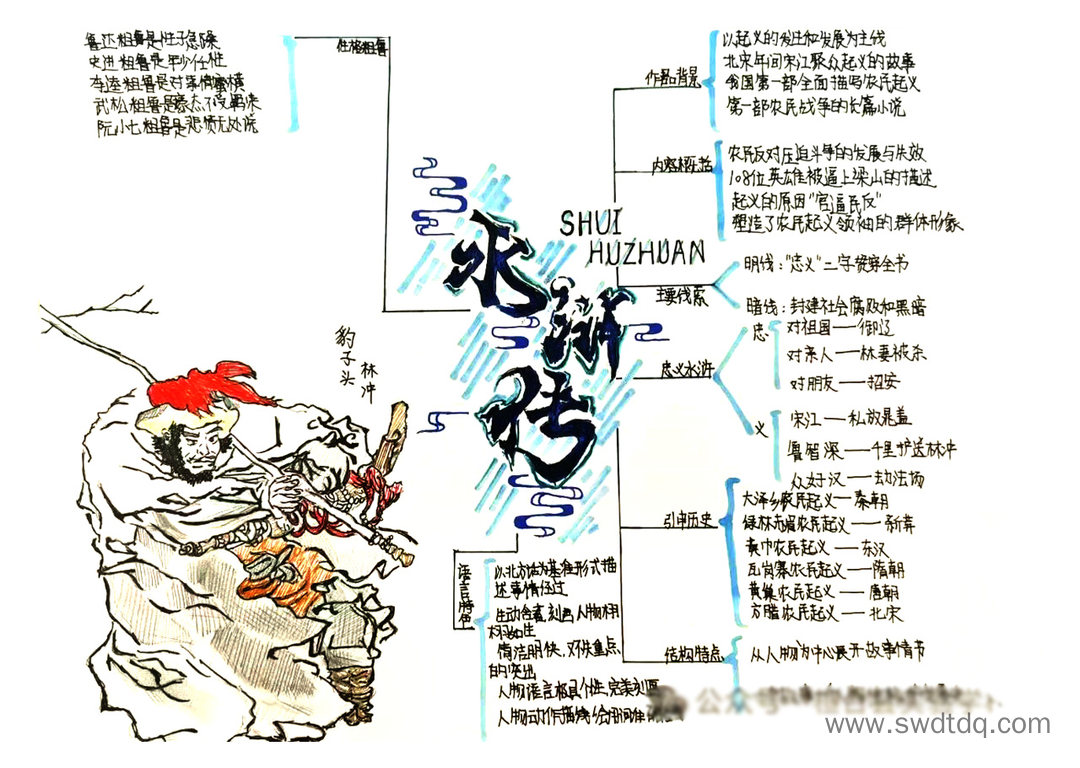 鲁达粗鲁是性子急躁
史进粗鲁是年少任性
李逵粗鲁是对事情蛮横
武松粗鲁是豪杰不受羁束
阮小七粗鲁是悲愤无处说
性格粗鲁
水浒传
SHUI
HUZHUAN
豹子头
林冲
作品背景
以起义的发生和发展为主线
北宋年间宋江聚众起义的故事
我国第一部全面描写农民起义
第一部农民战争的长篇小说
内容概括
农民反对压迫斗争的发展与失败
108位英雄被逼上梁山的描述
起义的原因"官逼民反"
塑造了农民起义领袖的群体形象
主要线索
明线："忠义"二字贯穿全书
暗线：封建社会腐败和黑暗
忠义水浒
忠
对祖国——御辽
对亲人——林妻被杀
对朋友——招安
义
宋江——私放晁盖
鲁智深——千里护送林冲
众好汉——劫法场
引申历史
大泽乡农民起义——秦朝
绿林赤眉农民起义——新莽
黄巾农民起义——东汉
瓦岗寨农民起义——隋朝
黄巢农民起义——唐朝
方腊农民起义——北宋
结构特点
从人物为中心展开故事情节
语言特色
以北方话为基准形式描
述事情经过
生动含蓄,刻画人物栩
栩如生
简洁明快,对快重点
的突出
人物语言极具个性,完美刻画
人物动作描线
公众号
www.swdtdq.com